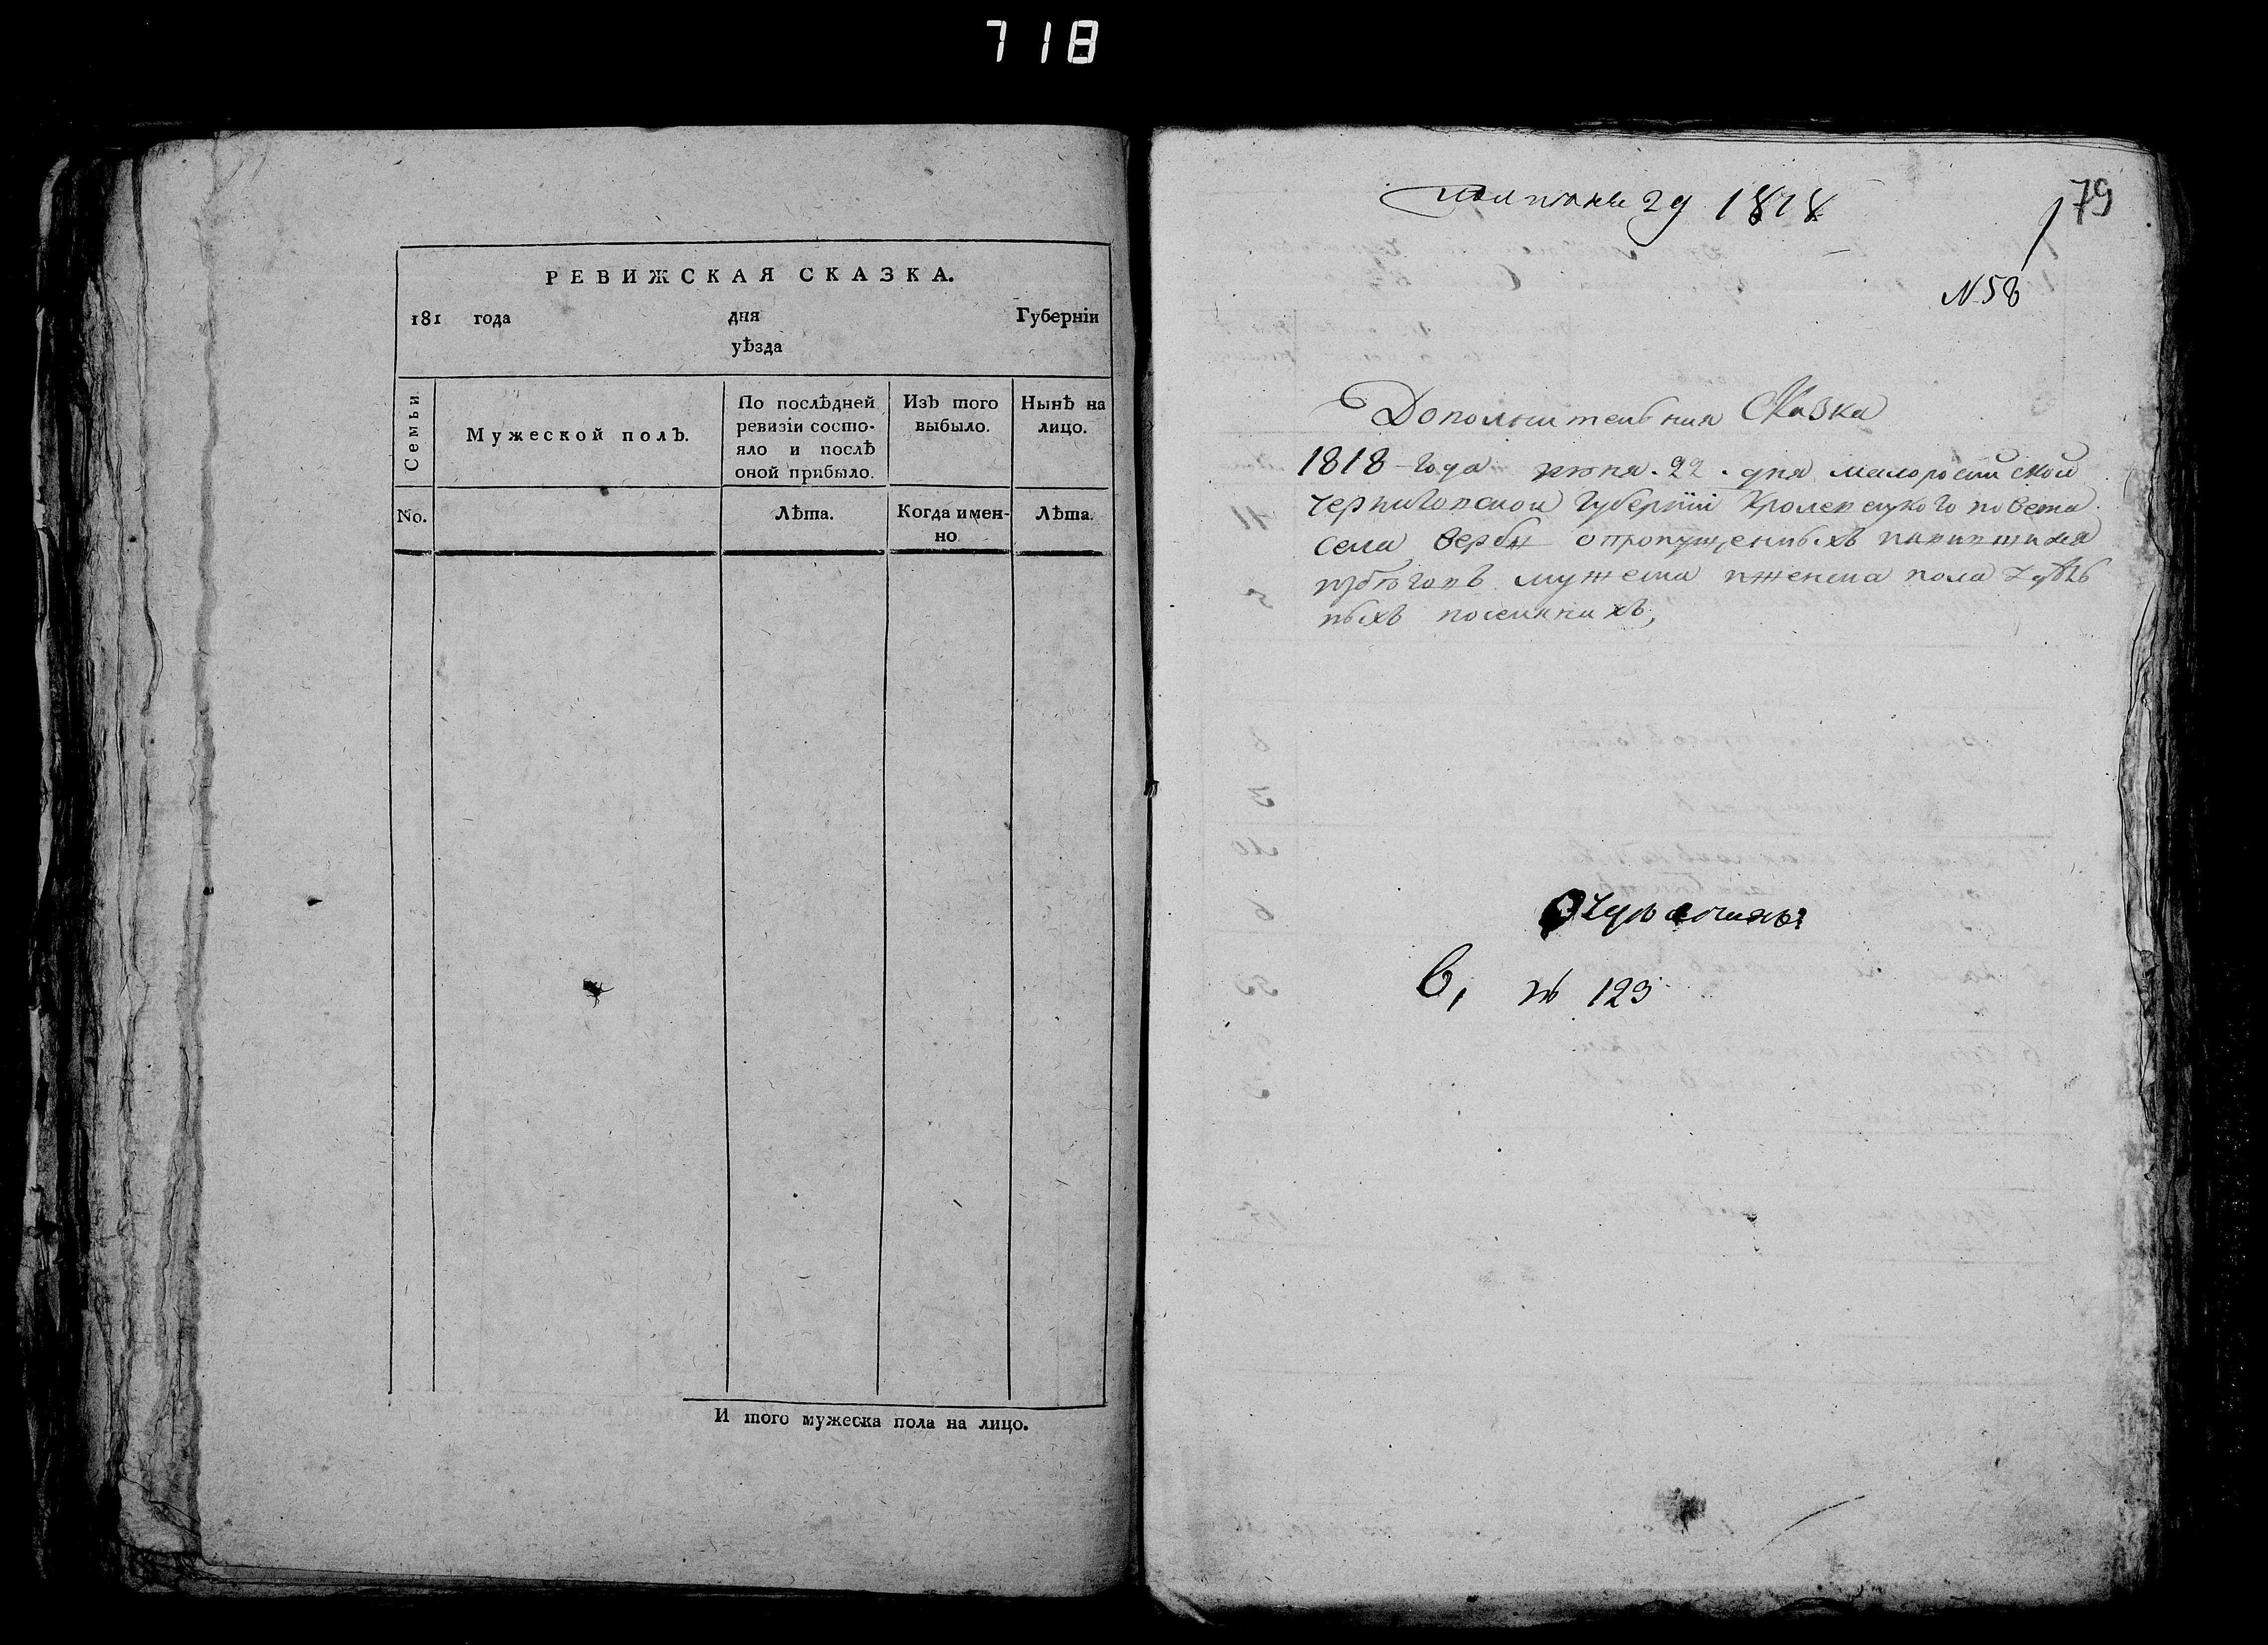 718
РЕВИЖСКАЯ СКАЗКА.
181 года дня Губерніи
уѣзда
Семьи.
Мужеской полъ.
По послѣдней ревизіи состо-
яло и послѣ оной прибыло.
Изъ того выбыло.
Нынѣ на лицо.
No.
Лѣта.
Когда имен-
но
Лѣта.
И того мужеска пола на лицо.
29 1818
79
N 58
Дополнительная Сказка
1818 года июня 22 дня малоросийской
черниговской губерний Кролевецкого повета
села вербы о пропущенныхъ
мужеска и женска пола
ныхъ
в, № 123